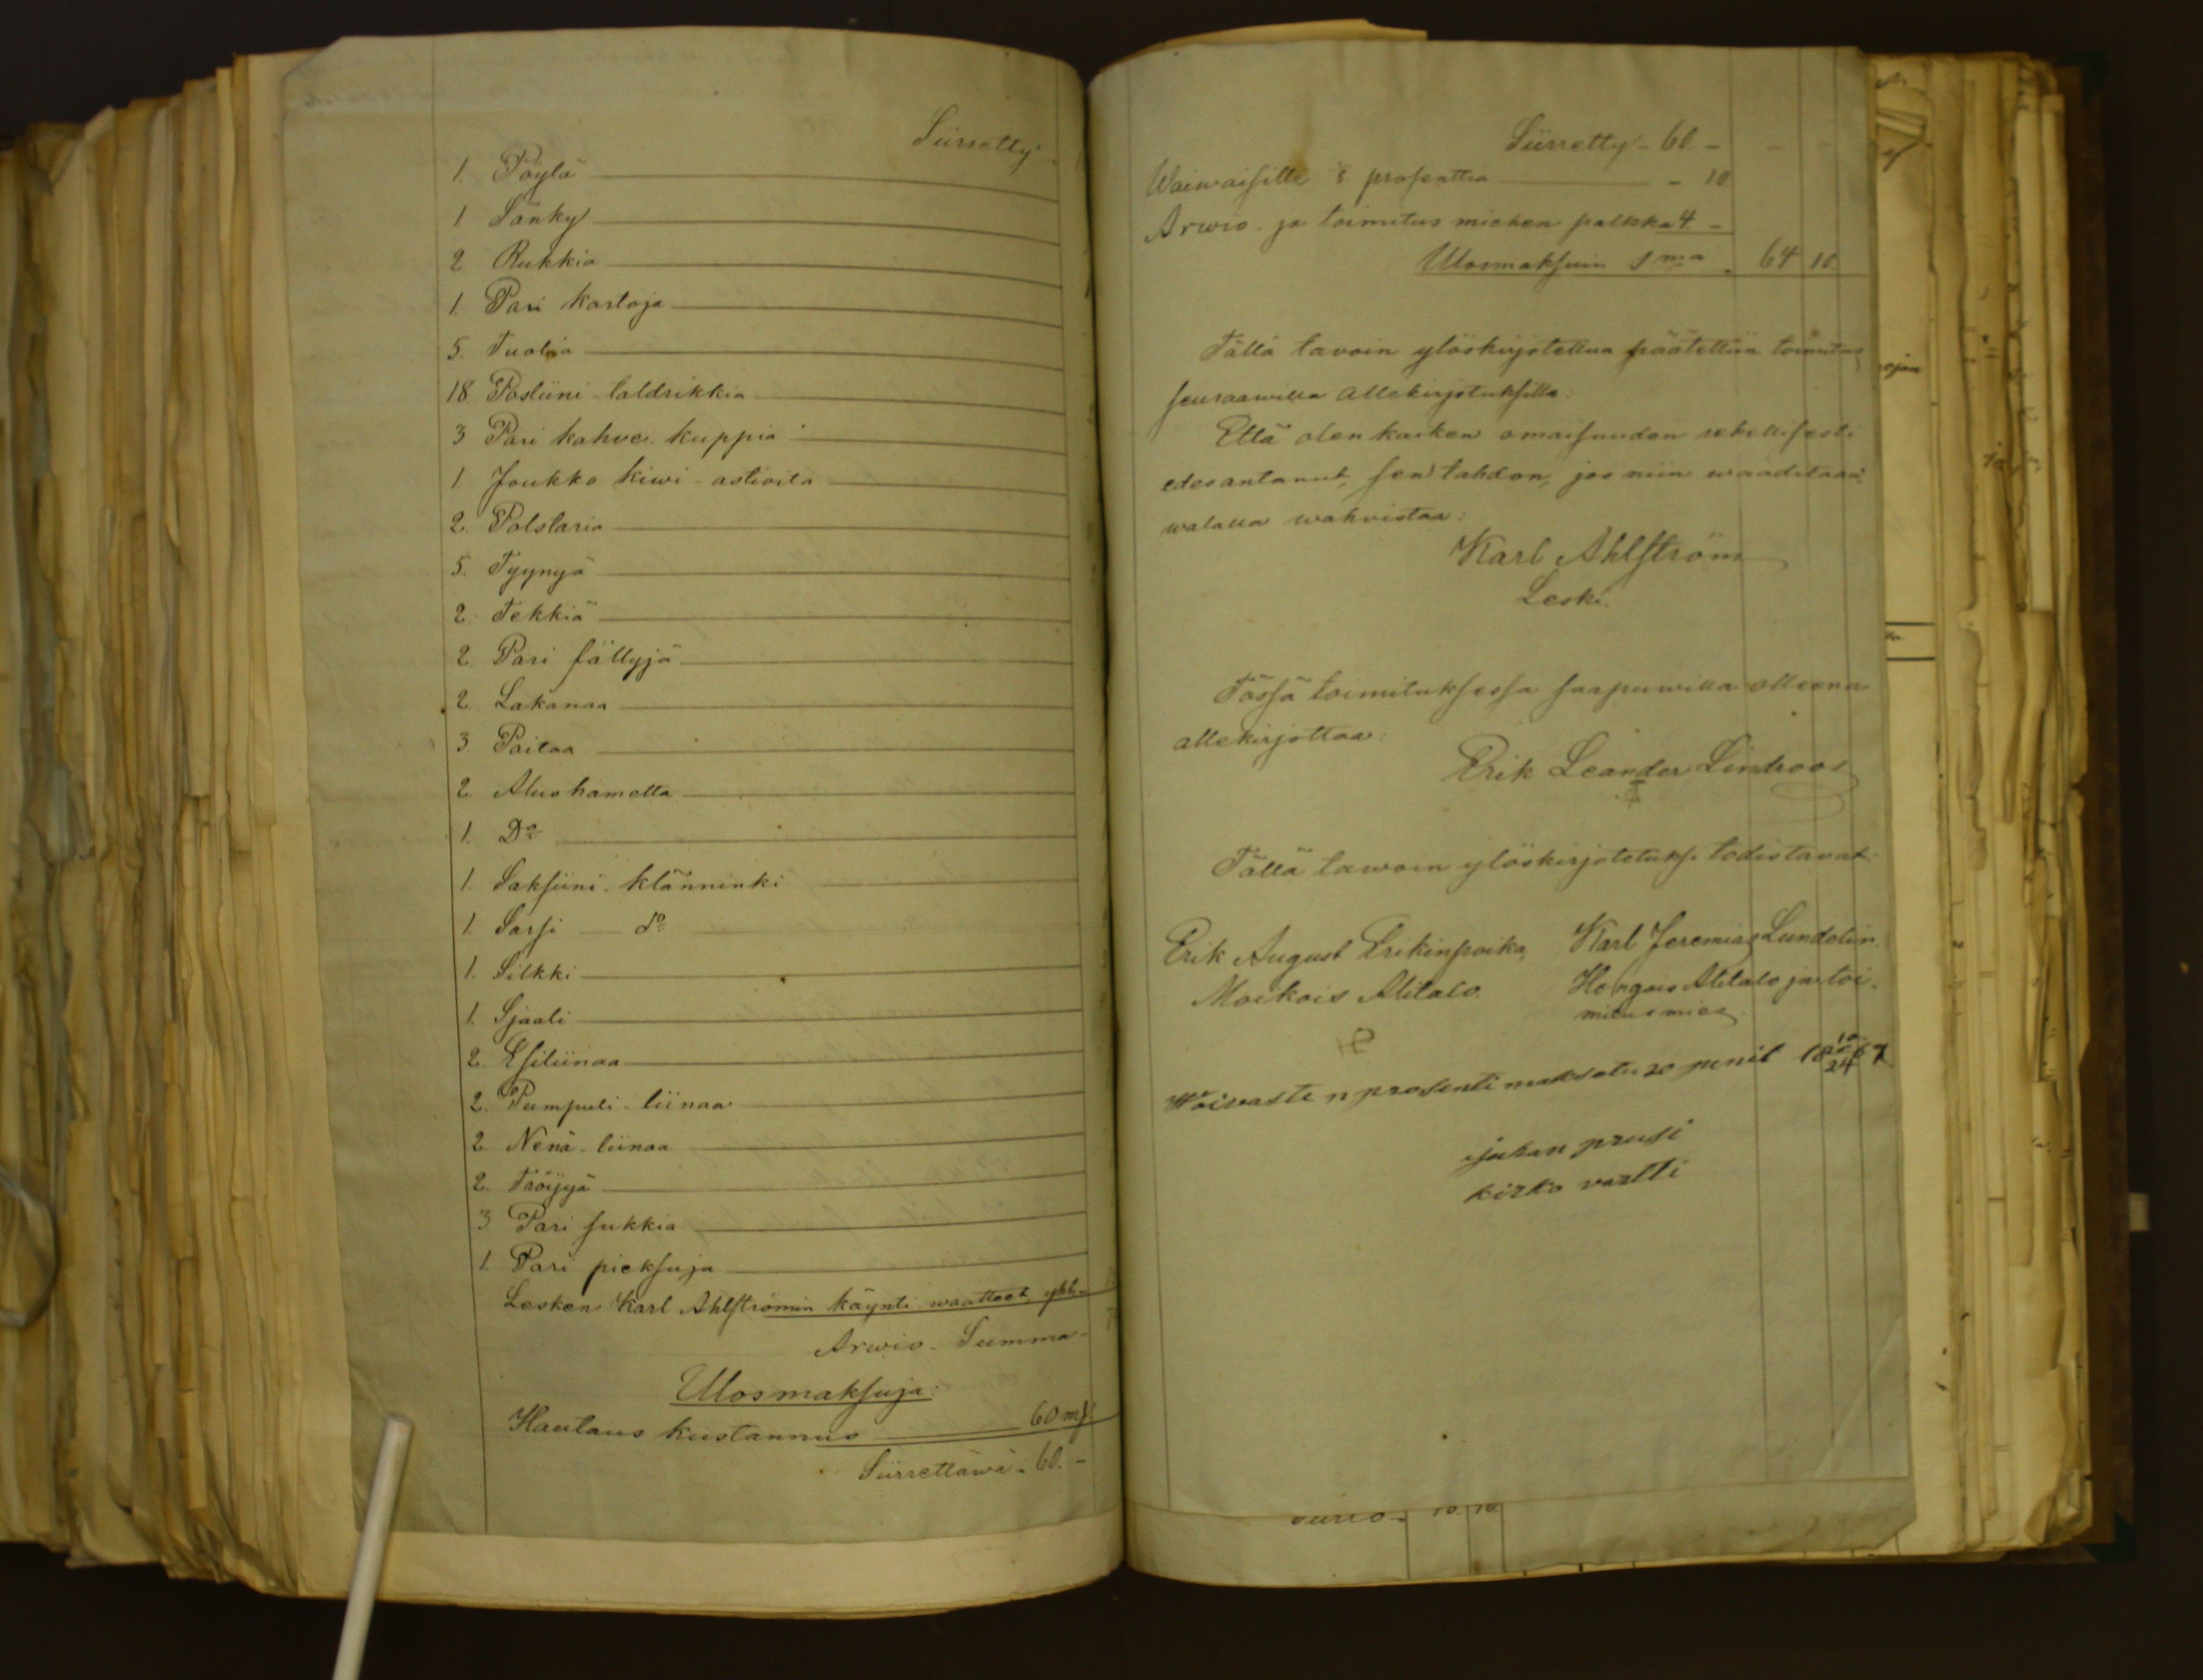 Siirretty
1. Pöytä
1 Sänky
2 Rukkia
1. Pari kartoja
5. Tuolia
18 Posliini taldrikkia
3 Pari kahve kuppia
1. Joukko kiwi-astioita
2. Polstaria
5. Tyynyä
2. Tekkiä
2 Pari fällyjä
2. Lakanaa
3. Paitaa
2. Alushametta
1. Do
1. Saksiini-klänninki
1. Sarsi do
1. Silkki
1. Sjaali
2. Esiliinaa
2. Pumpuli-liinaa
2 Nenä-liinaa
2. Tröijyä
3 Pari sukkia
1. Pari pieksuja
Lesken Karl Ahlströmin käynti waatteet, yht.
Arwio-Summa
Ulosmaksuja:
Hautaus kustannus 60 mf
Siirrettäwä. 60. -
Siirretty - 60. -
Waiwaisille 1/8 prosenttia - 10
Arwio- ja toimitus miehen palkka 4 -
Ulosmaksuin Sma 64 10.
Tällä tavoin ylöskirjotettua päätettiin toimitus
seuraawilla allekirjotuksilla:
Että olen kaiken omaisuuden rehellisesti
edesantanut, sen tahdon, jos niin waaditaan,
walalla wahvistaa:
Karl Ahlström
Leski.
Tässä toimituksessa saapuwilla olleena
allekirjottaa:
Erik Leander Lindroos
Tällä tawoin ylöskirjotetuksi todistavat:
Erik August Erikinpoika, Karl Jeremias Lundelin
Moikois Alitalo. Hongois Alitalo ja toi-
mitusmies
prosenti maksetu 20 penil
juhan prusi
kirko vartti
10. 10